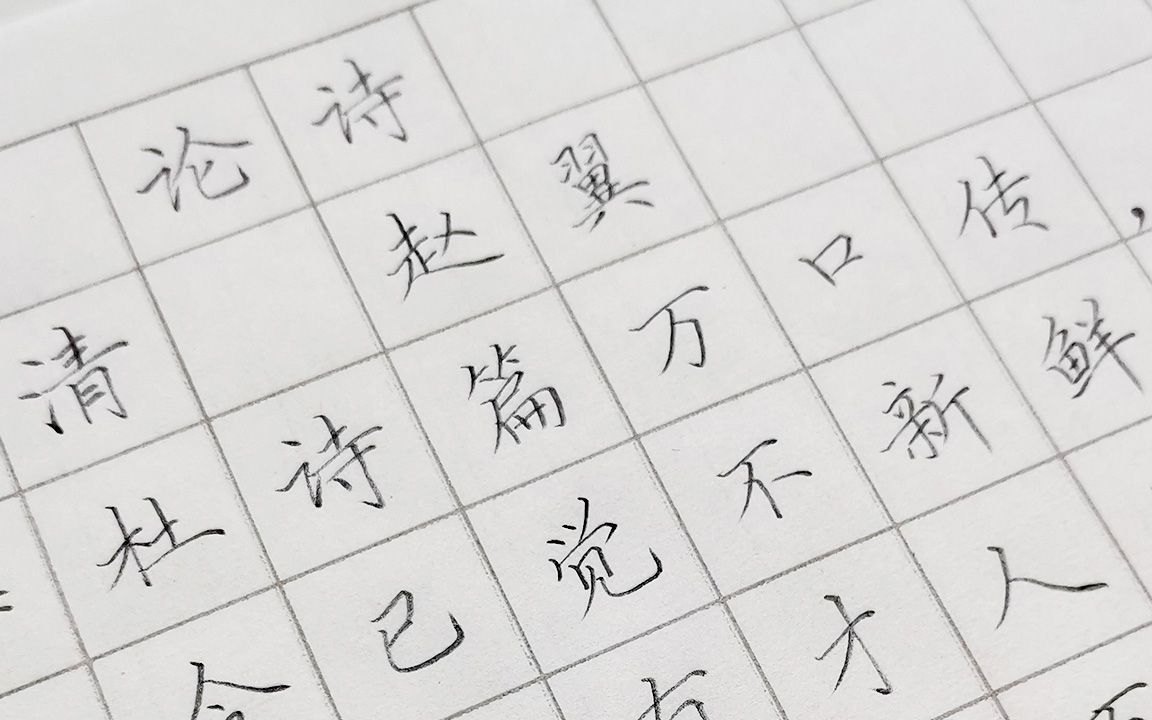 论诗
清 赵翼
杜诗篇万口传，
今已觉不新鲜
有才人